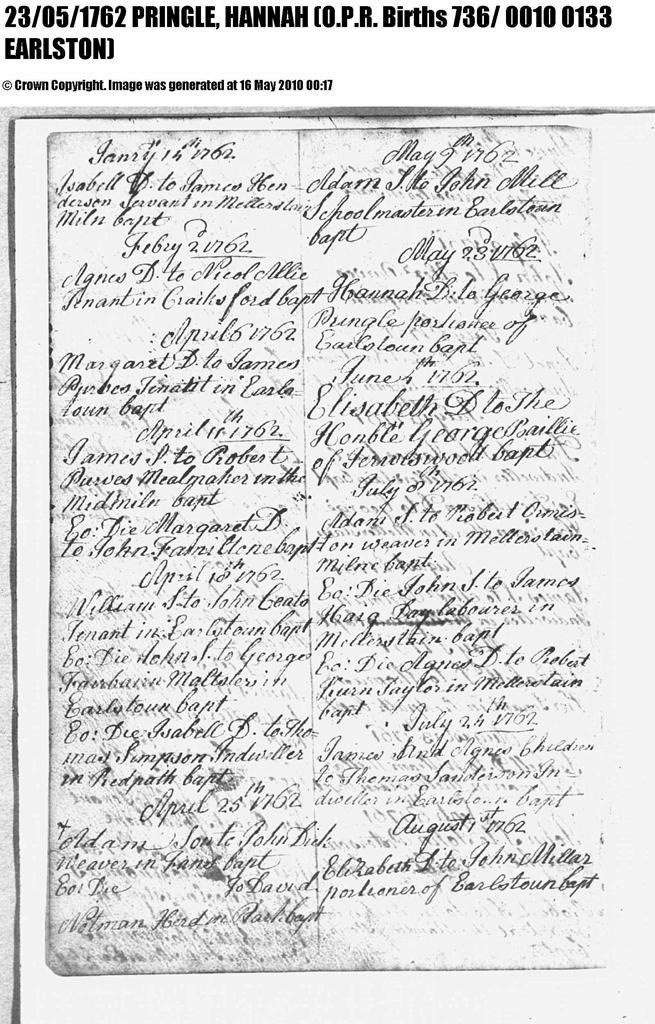 23/05/1762 PRINGLE, HANNAH (O.P.R. Births 736/ 0010 0133
EARLSTON)
© Crown Copyright. Image was generated at 16 May 2010 00:17
Janry 14th 1762.
Isabell D: to James Hen-
derson Servant in Mellerstain
Miln bapt
Febry 2d 1762.
Agnes D: to Nicol Allie
Tenant in Craiks ford bapt
April 6 1762
Margaret D: to James
Purves Tenant in Earls-
toun bapt
April 11th 1762.
James S: to Robert
Purves Mealmaker in the
Midmiln bapt
Eo: Die Margaret D.
to John bapt
April 18th 1762
William S: to John Coats
Tenant in Earlstoun bapt
Eo: Die John S. to George
Fairbairn Maltster in
Earlstoun bapt
Eo: Die Isabell D: to Tho-
mas Simpson Indweller
in Redpath bapt
April 25th 1762
+ Adam Son to John Dick
Weaver in Fans bapt
Eo: Die To David
Notman Herd in Park bapt
May 9th 1762
Adam S. to John Mill
Schoolmaster in Earlstoun
bapt
May 23d 1762.
Hannah D: to George
Pringle portioner of
Earlstoun bapt
June 1762.
Elisabeth D to The
Honble George Baillie
of Jerviswood bapt
July 1762
Adam S. to Robert Ormis-
ton weaver in Mellerstain-
Milne bapt
Eo: Die John S. to James
Haig Day labourer in
Mellerstain bapt
Eo: Die Agnes D. to Robert
Taylor in Mellerstain
bapt
July 24th 1762
James And Agnes Children
to Thomas Sanderson In-
dweller in Earlstoun bapt
August 1st 1762
Elizabeth D to John Millar
portioner of Earlstoun bapt